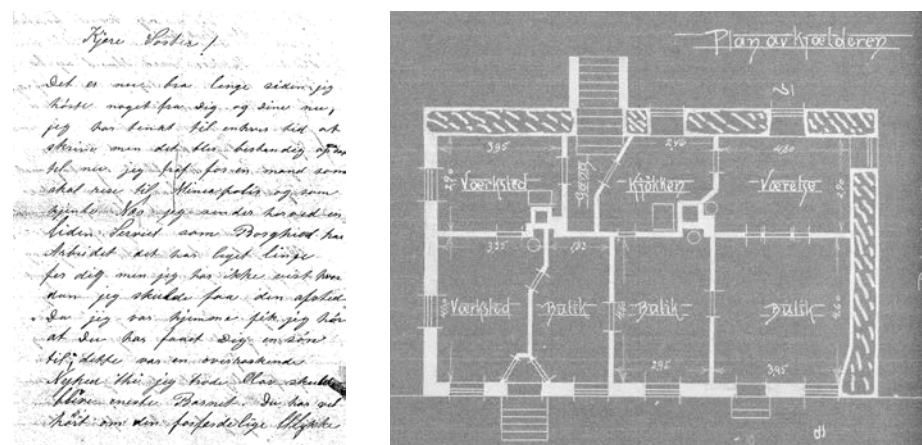 Kjere Søster!
Det er nu bra lenge siden jeg
hørte noget fra Dig og dine nu,
jeg har tenkt til enhver tid at
skrive men det blir bestandig
til nu jeg traf for en mand som
skal reise til Mineapolis og som
kjente Jeg sender herved en
liden Serviet som Borghild har
Arbeidet det har liget linge
for dig men jeg har ikke vist hvor
dan jeg skulde faa den afsted
Da jeg var hjemme fik jeg hør
at Du har faaet Dig en søn
til, dette var en overraskende
Nyhed thi jeg trode Olav skulde
blive eneste Barnet. Du har vel
hørt om den forferdelige Ulykke
Plan av kjælderen
3,95
2,40
4,30
2,90
Værksted
Gang
Kjökken
Værelse
2,90
3,25
1,82
Værksted
Butik
Butik
Butik
4,60
2,95
3,95